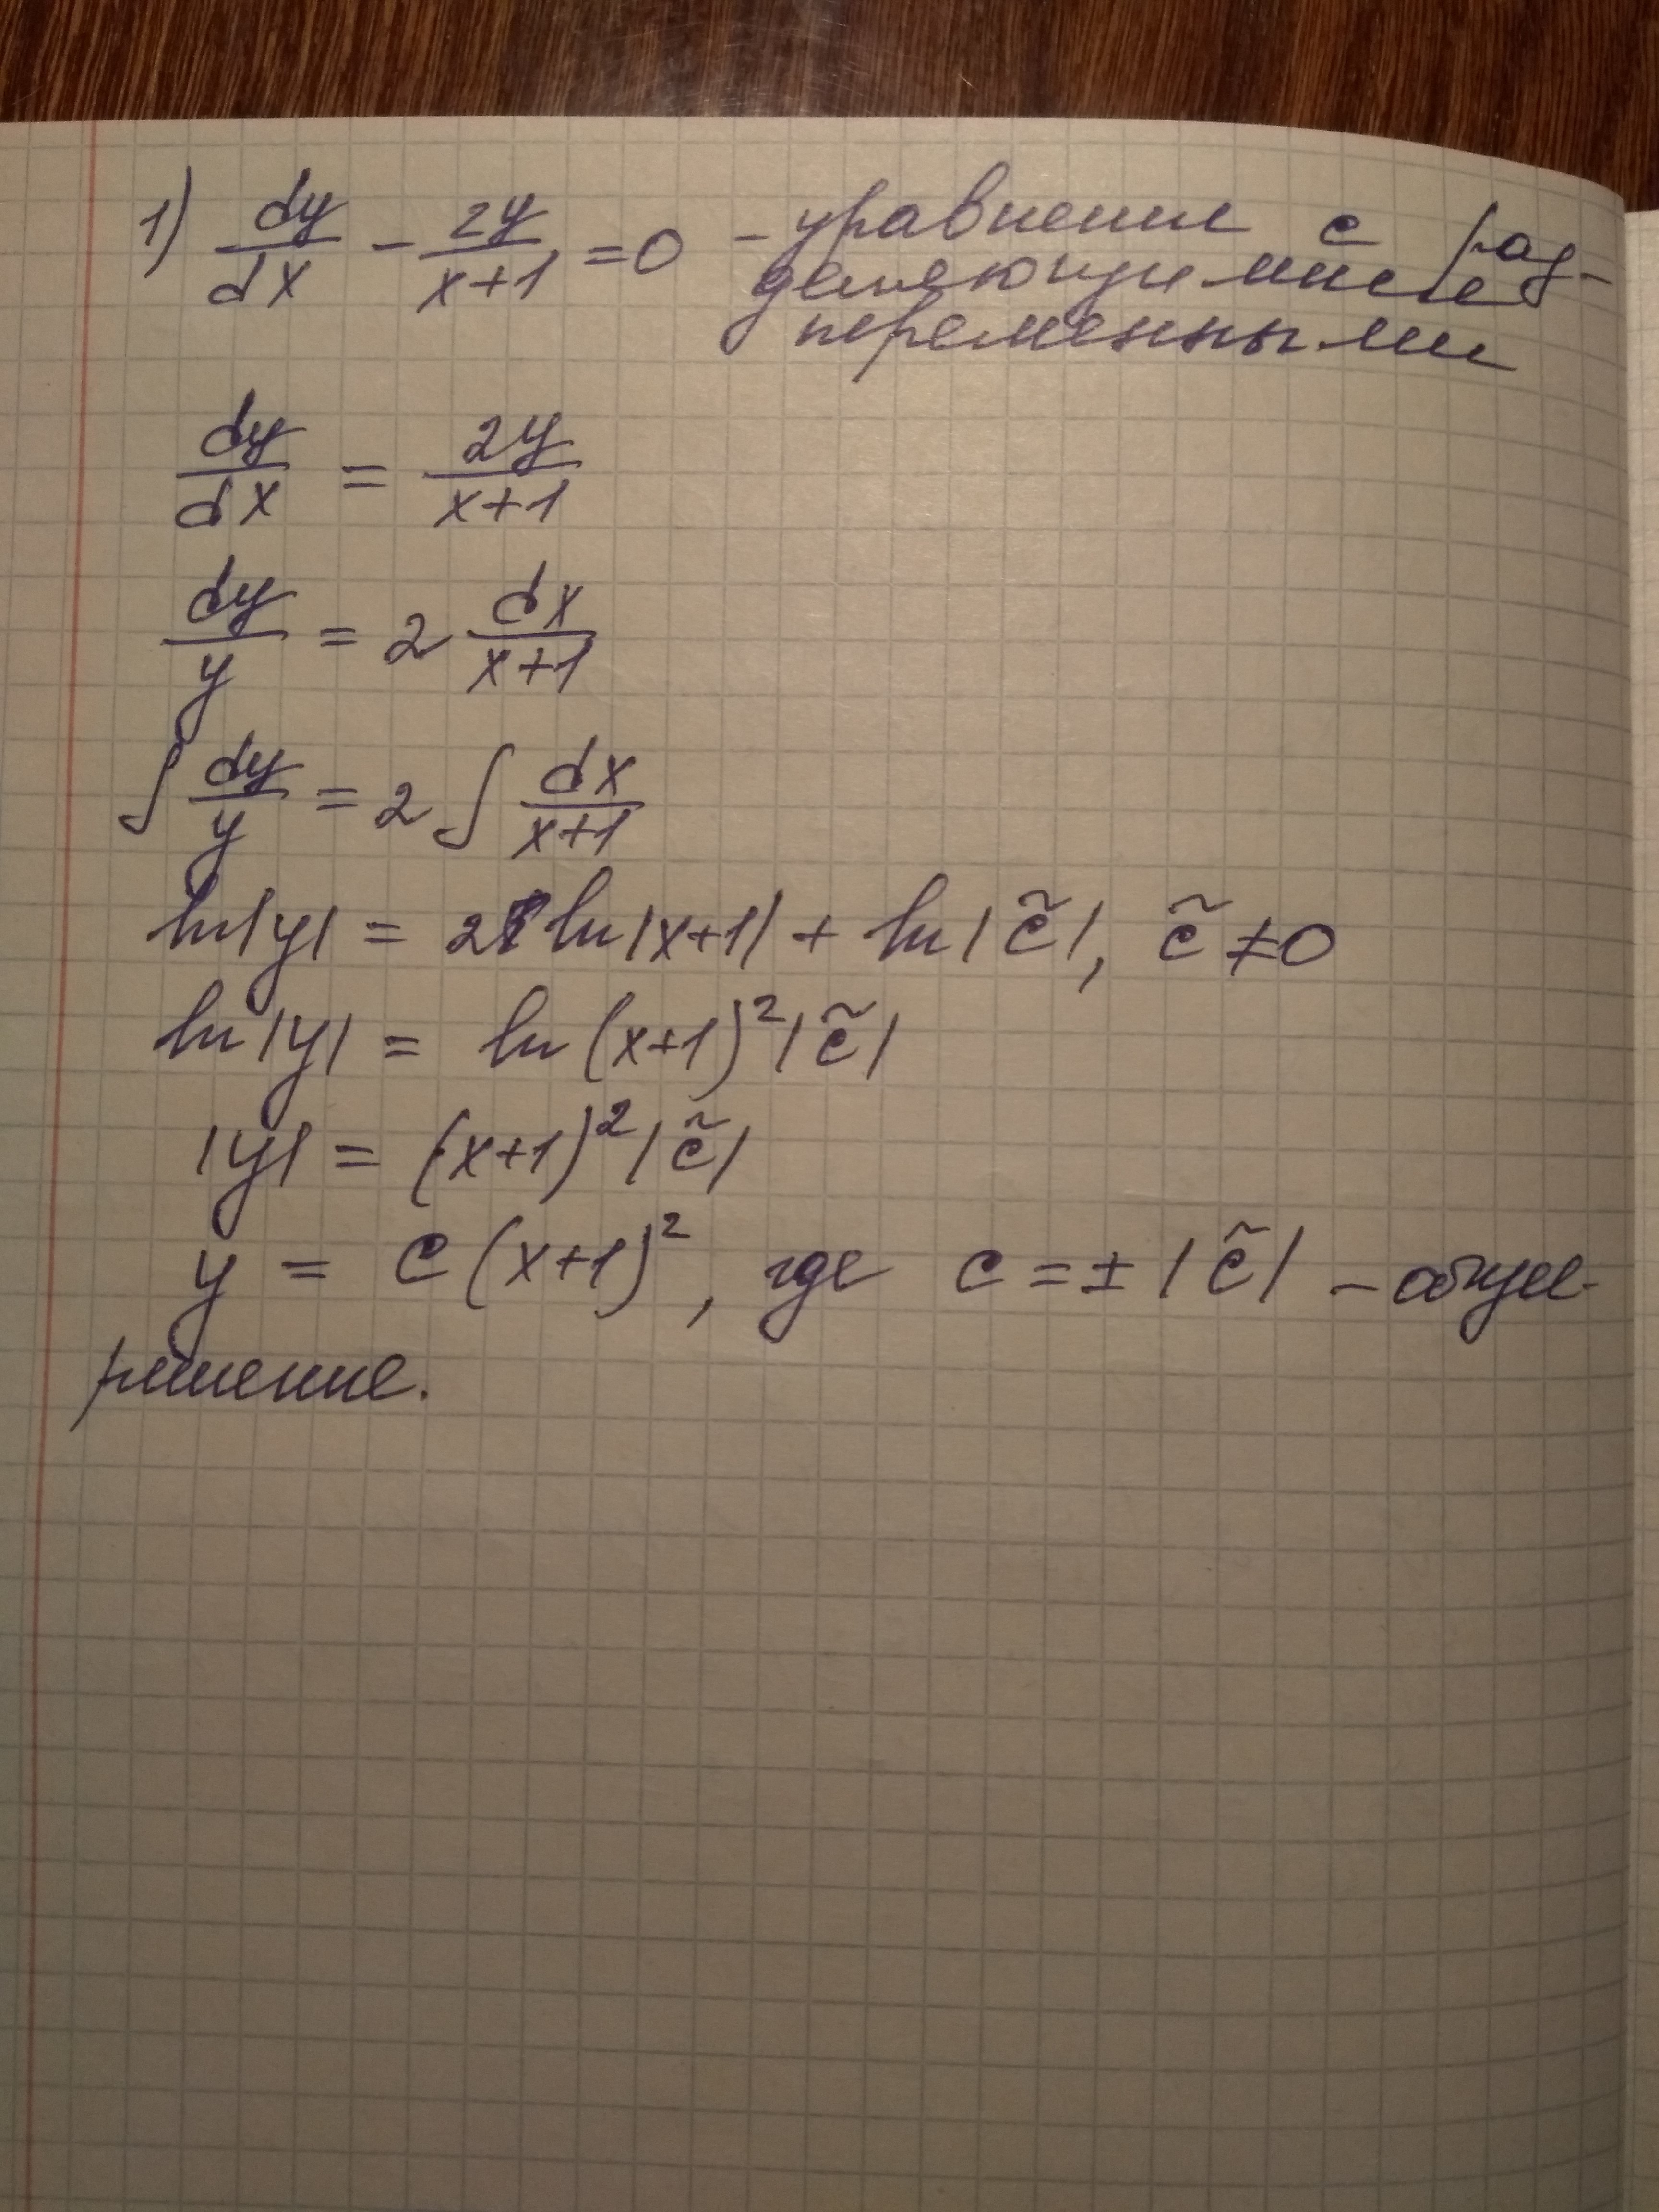 1) dy/dx - 2y/(x+1) = 0 - уравнение с раз-
деляющимися
переменными
dy/dx = 2y/(x+1)
dy/y = 2 dx/(x+1)
∫ dy/y = 2 ∫ dx/(x+1)
ln|y| = 2 ln|x+1| + ln|c̃|, c̃ ≠ 0
ln|y| = ln(x+1)²|c̃|
|y| = (x+1)²|c̃|
y = c(x+1)², где c = ± |c̃| - общее
решение.